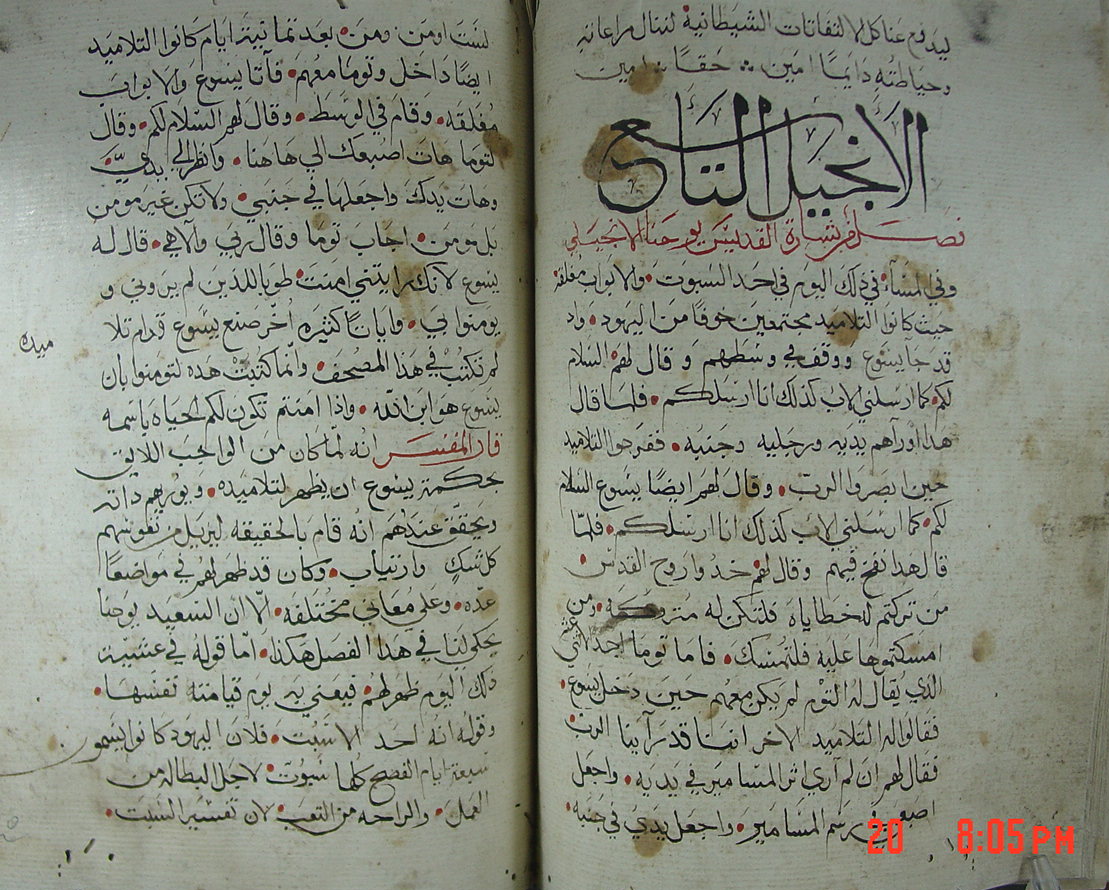 ليدفع عنا كل الالتفاتات الشيطانية لننال مراعاته
وحياطته دايمًا امين حقًا امين
الانجيل التاسع
فصل من بشارة القديس يوحنا الانجيلي
وفي المسآء في ذلك اليوم في احد السبوت والابواب مغلقه
حيث كانوا التلاميد مجتمعين خوفًا من اليهود واد
قد جا يسوع ووقف في وسطهم وقال لهم السلام
لكم كما ارسلني الاب كدلك انا ارسلكم فلما قال
هدا اوراهم يديه ورجليه وجنبه ففرحوا التلاميد
حين ابصروا الرب وقال لهم ايضًا يسوع السلام
لكم كما ارسلني الاب كدلك انا ارسلكم فلمّا
قال هدا نفخ فيهم وقال لهم خدوا روح القدس
من تركتم له خطاياه فلتكن له متروكه ومن
امسكتموها عليه فلتمسك فاما توما احد الاثني عشر
الدي يُقال له التوم لم يكن معهم حين دخل يسوع
فقالوا له التلاميد الاخر اننا قد رآينا الرب
فقال لهم ان لم آرى اثر المسامير في يديه واجعل
اصبعي في رسم المسامير واجعل يدي في جنبه
لست اومن ومن بعد تمانية ايام كانوا التلاميد
ايضًا داخل وتوما معهم فآتا يسوع والابواب
مغلقه وقام في الوسط وقال لهم السلام لكم وقال
لتوما هات اصبعك الي هاهنا وانظر الي يديّ
وهات يدك واجعلها في جنبي ولا تكن غير مومن
بل مومن اجاب توما وقال ربي والاهي قال له
يسوع لانك رايتني امنت طوبا للدين لم يروني و
يومنوا بي وايات كثيره اخر صنع يسوع قدام تلا
ميده
لم تكتب في هدا المصحف وانما كتبت هده لتومنوا بان
يسوع هو ابن الله واذا امنتم تكون لكم الحياه باسمه
قال المفسر انه لما كان من الواجب اللايق
بحكمة يسوع ان يظهر لتلاميده ويوريهم داته
ويحقق عندهم انه قام بالحقيقه ليزيل من نفوسهم
كل شك وارتياب وكان قد ظهر لهم في مواضعًا
عده وعلي معاني مختلفه الا ان السعيد يوحنا
يحكي لنا في هدا الفصل هكدا امّا قوله في عشية
دلك اليوم ظهر لهم فيعني به يوم قيامته نفسها
وقوله انه احد الاسبت فلان اليهود كانوا يسمون
سبعة ايام الفصح كلها سبوت لاجل البطاله من
العمل والراحه من التعب لان تفسير السبت
20 8:05 PM